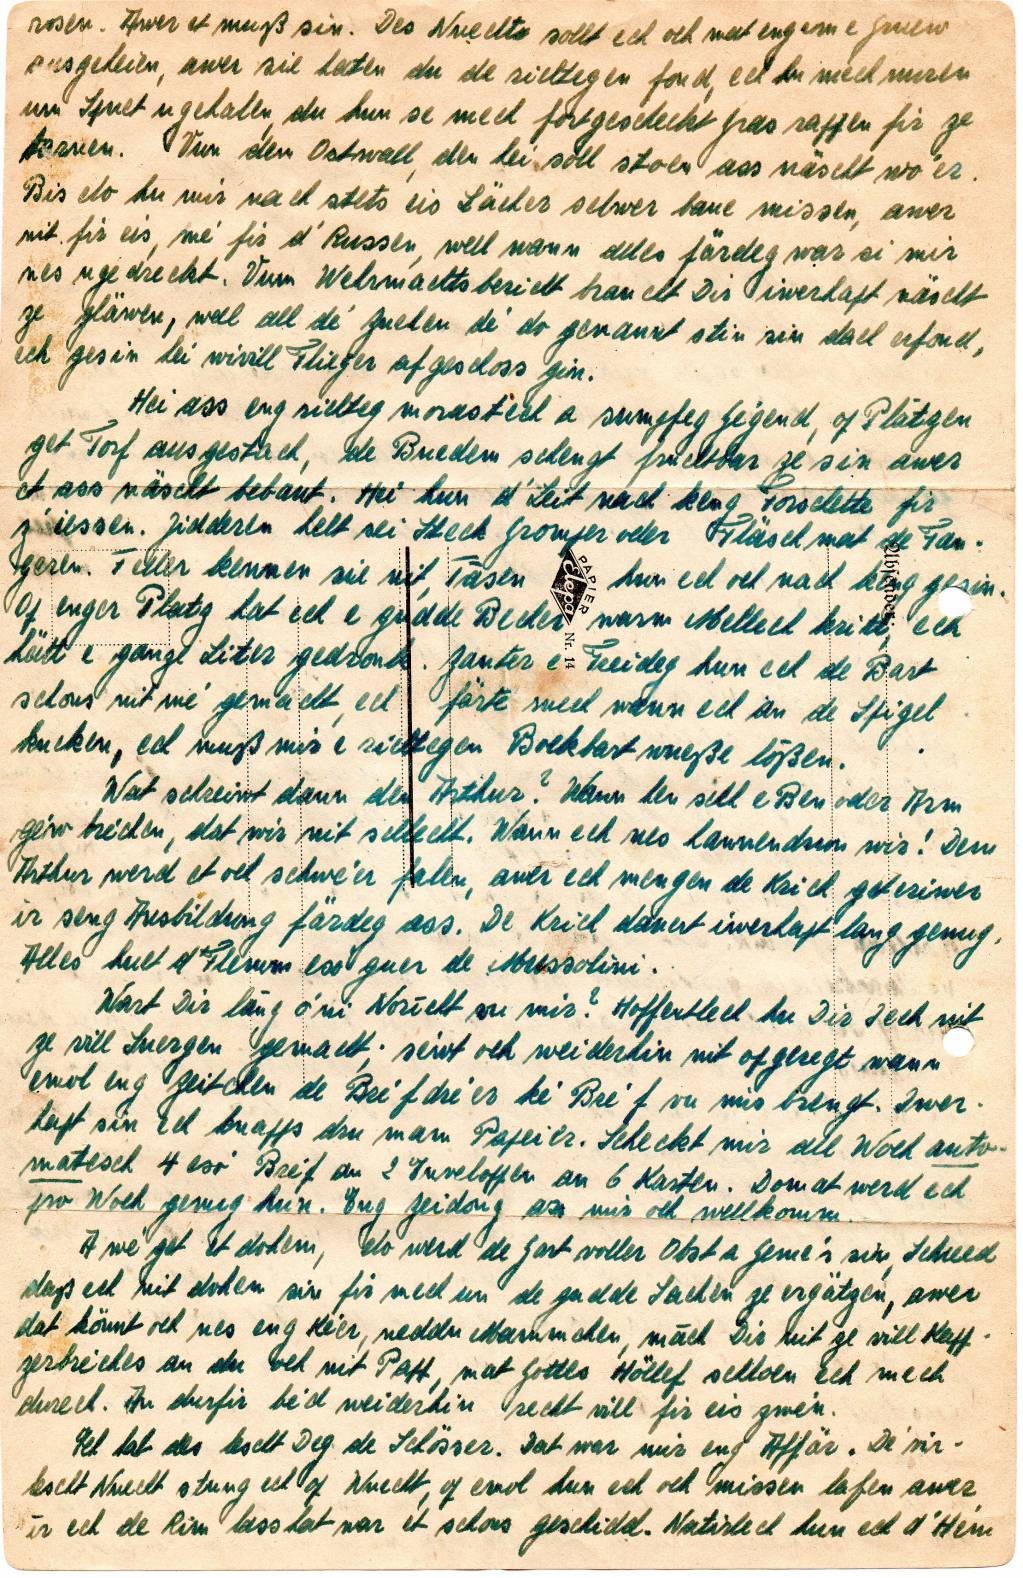 rosen. Awer et muß sin. Des Nuechts sollt ech och mat engem e Gruew
ausgeheien, awer sie haten du de richtegen fond, ech hu mech missen
um Spuet ugehalen, du hun se mech fortgescheckt Gras raffen fir ze
tarnen. Vun dem Ostwall, den hei soll stoen ass näscht wo'er.
Bis elo hu mir nach stets eis Lächer selwer baue missen, awer
nit fir eis, mé fir d'Russen, well wann alles färdeg war si mir
nes ugedréckt. Vum Wehrmachtsbericht braucht Dir iwerhaft näscht
ze gläwen, well all dé Zuelen dé do genannt stin sin dach erfond,
ech gesin hei wivill Flieger afgeschoss gin.
Hei ass eng richteg morastech a sumpfeg Gégend, of Plätzen
get Torf ausgestach, de Buedem schengt fruchtbar ze sin awer
et ass näscht bebaut. Hei hun d'Leit nach keng Forschette fir
z'iessen. Jidderen helt sei Steck Gromper oder Fläsch mat de Fan-
geren. Teller kennen sie nit, Tasen hun ech och nach keng gesin.
Of enger Platz hat ech e gudde Becher warm Mellech kritt, ech
hätt e ganze Liter gedronk. Zanter e Freideg hun ech de Bart
schons nit mé gemacht, ech färte mech wann ech an de Spigel
kucken, ech muß mir e richtegen Bockbart wueße lößen.
PAPIER
Elepa
Nr. 14
Absender:
Wat schreiwt dann den Arthur? Wann hen sech e Ben oder Arm
géiw briechen, dat wir nit schlecht. Wann ech nes hannendrun wir! Dem
Arthur werd et och schwe'er falen, awer ech mengen de Krich get eriwer
ir seng Ausbildung färdeg ass. De Krich dauert iwerhaft lang genug.
Alles huet d'Flemm eso guer de Mussolini.
Wart Dir lang o'ni Noricht vu mir? Hoffentlech hu Dir Iech nit
ze vill Suergen gemacht; seiwt och weiderhin nit ofgeregt wann
emol eng Zeitchen de Bréifdréier ké Bréif vu mir brengt. Iwer-
haft sin ech knapps dru mam Papéier. Scheckt mir all Woch auto-
matesch 4 esó Breif an 2 Inveloppen an 6 Karten. Domat werd ech
pro Woch genug hun. Eng Zeidong ass mir och wellkomm.
A wé get et dohem, do werd de Gart voller Obst a Geméis sin, Schued
dass ech nit dohem sin fir mech un de gudde Sachen ze ergätzen, awer
dat könnt och nes eng Kéier, neddu Mammchen, mäch Dir nit ze vill Kapp-
zerbriéches an du och nit Papp, mat Gottes Höllef schloen ech mech
durech. An dufir béd weiderhin recht vill fir eis zwen.
Ech hat des lescht Deg de Schösser. Dat war mir eng Affär. De vir-
lescht Nuecht stung ech of Wuecht, of emol hun ech och missen lafen awer
ir ech de Rim lass hat war et schons geschidd. Natirlech hun ech d'Hem